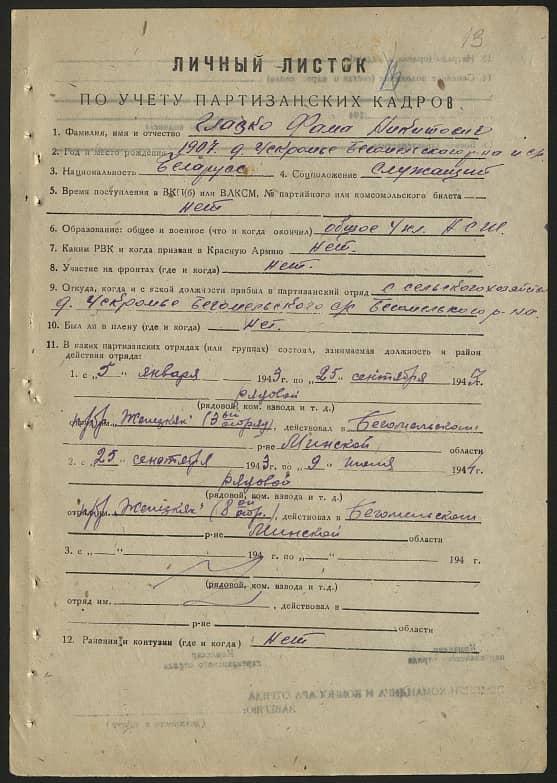 13
ЛИЧНЫЙ ЛИСТОК
ПО УЧЕТУ ПАРТИЗАНСКИХ КАДРОВ
1. Фамилия, имя и отчество Фама Никитович
2. Год и место рождения 1907 д. Ускромье Бегомельского р-на и с/р.
3. Национальность Беларус 4. Соцположение Служащий
5. Время поступления в ВКП(б) или ВЛКСМ, № партийного или комсомольского билета
нет
6. Образование: общее и военное (что и когда окончил) общее 4 кл.
7. Каким РВК и когда призван в Красную Армию Нет.
8. Участие на фронтах (где и когда) Нет.
9. Откуда, когда и с какой должности прибыл в партизанский отряд с сельского хозяйства
д. Ускромье Бегомельского с/р. Бегомельского р-на.
10. Был ли в плену (где и когда) Нет.
11. В каких партизанских отрядах (или группах) состоял, занимаемая должность и район
действия отряда:
1. с „5" января 1943 г. по „25" сентября 194 г.
рядовой
(рядовой, ком. взвода и т. д.)
бр. Железняк (3 ой отряд), действовал в Бегомельском
р-не Минской области
2. с „25" сентября 1943 г. по „9" июля 1944 г.
рядовой
(рядовой, ком. взвода и т. д.)
отряд бр. Железняк (8 ой отр.), действовал в Бегомельском
р-не Минской области
3. с „—" — 194 г. по „—" — 194 г.
(рядовой, ком. взвода и т.д.)
отряд им. , действовал в
р-не области
12. Ранения и контузии (где и когда) Нет